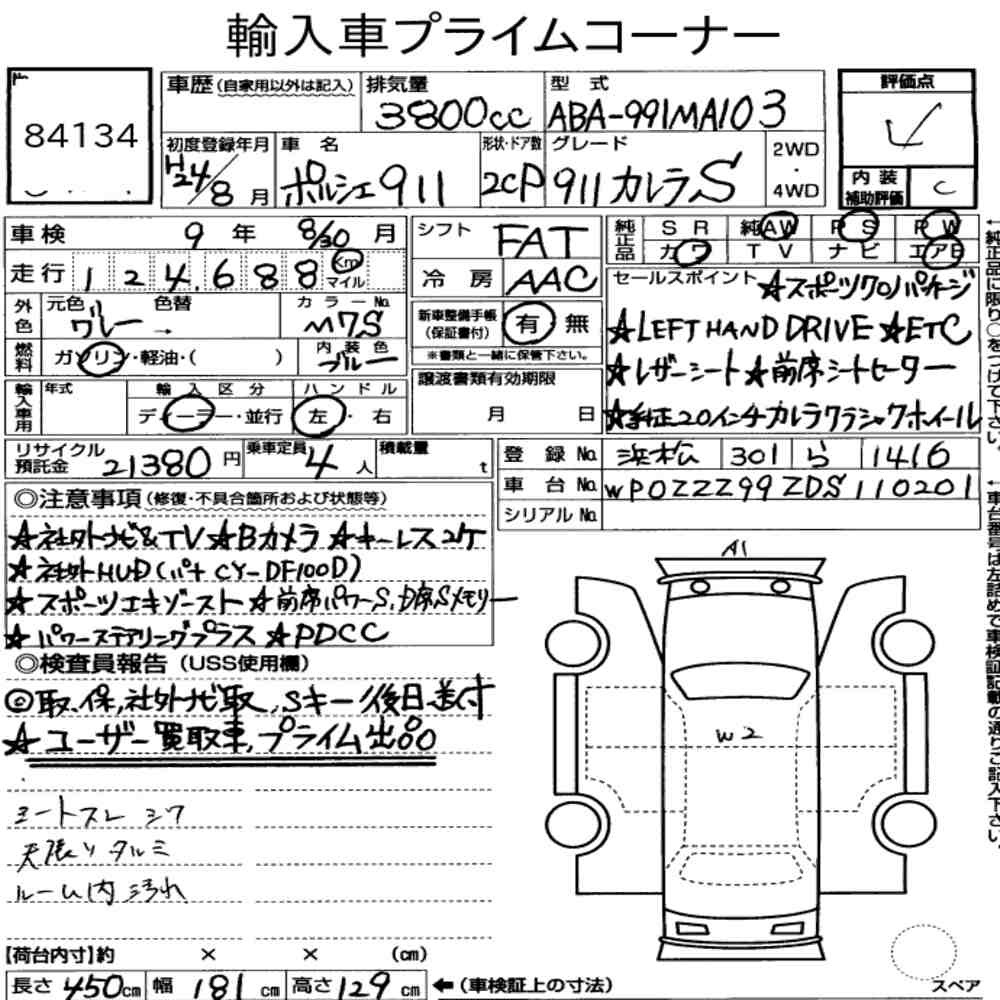 輸入車プライムコーナー
84134
車歴(自家用以外は記入) 排気量 型式 評価点
3800cc ABA-991MA103
初度登録年月 車名 形状・ドア数 グレード 2WD・4WD
H24/8月 ポルシェ911 2CP 911カレラS
内装補助評価 C
車検 9年 8/30月
走行 124,688 Km マイル
外色 元色 グレー → 色替 カラーNo. M7S
燃料 ガソリン・軽油・( ) 内装色 ブルー
輸入車用 年式 輸入区分 ディーラー・並行 ハンドル 左・右
シフト FAT
冷房 AAC
新車整備手帳(保証書付) 有 無
※書類と一緒に保管下さい。
譲渡書類有効期限
月 日
純正品 SR 純AW PS PW
カワ TV ナビ エアB
セールスポイント ★スポーツクロノパッケージ
★LEFT HAND DRIVE ★ETC
★レザーシート ★前席シートヒーター
★純正20インチカレラクラシックホイール
←純正品に限り○をつけて下さい。
リサイクル預託金 21380円 乗車定員 4人 積載量 t
登録No. 浜松 301 ら 1416
車台No. WP0ZZZ99ZDS110201
シリアルNo.
←車台番号は左詰めで車検証記載の通りご記入下さい。
◎注意事項(修復・不具合箇所および状態等)
★社外ナビ&TV ★Bカメラ ★キーレス2ケ
★社外HUD(パナ CY-DF100D)
★スポーツエキゾースト ★前席パワーS,D席Sメモリー
★パワーステアリングプラス ★PDCC
◎検査員報告(USS使用欄)
◎取,保,社外ナビ取,Sキー後日送付
★ユーザー買取車,プライム出品
シートスレ シワ
天張りタルミ
ルーム内汚れ
A1
W2
【荷台内寸】約 × × (cm)
長さ 450cm 幅 181cm 高さ 129cm ←(車検証上の寸法)
スペア